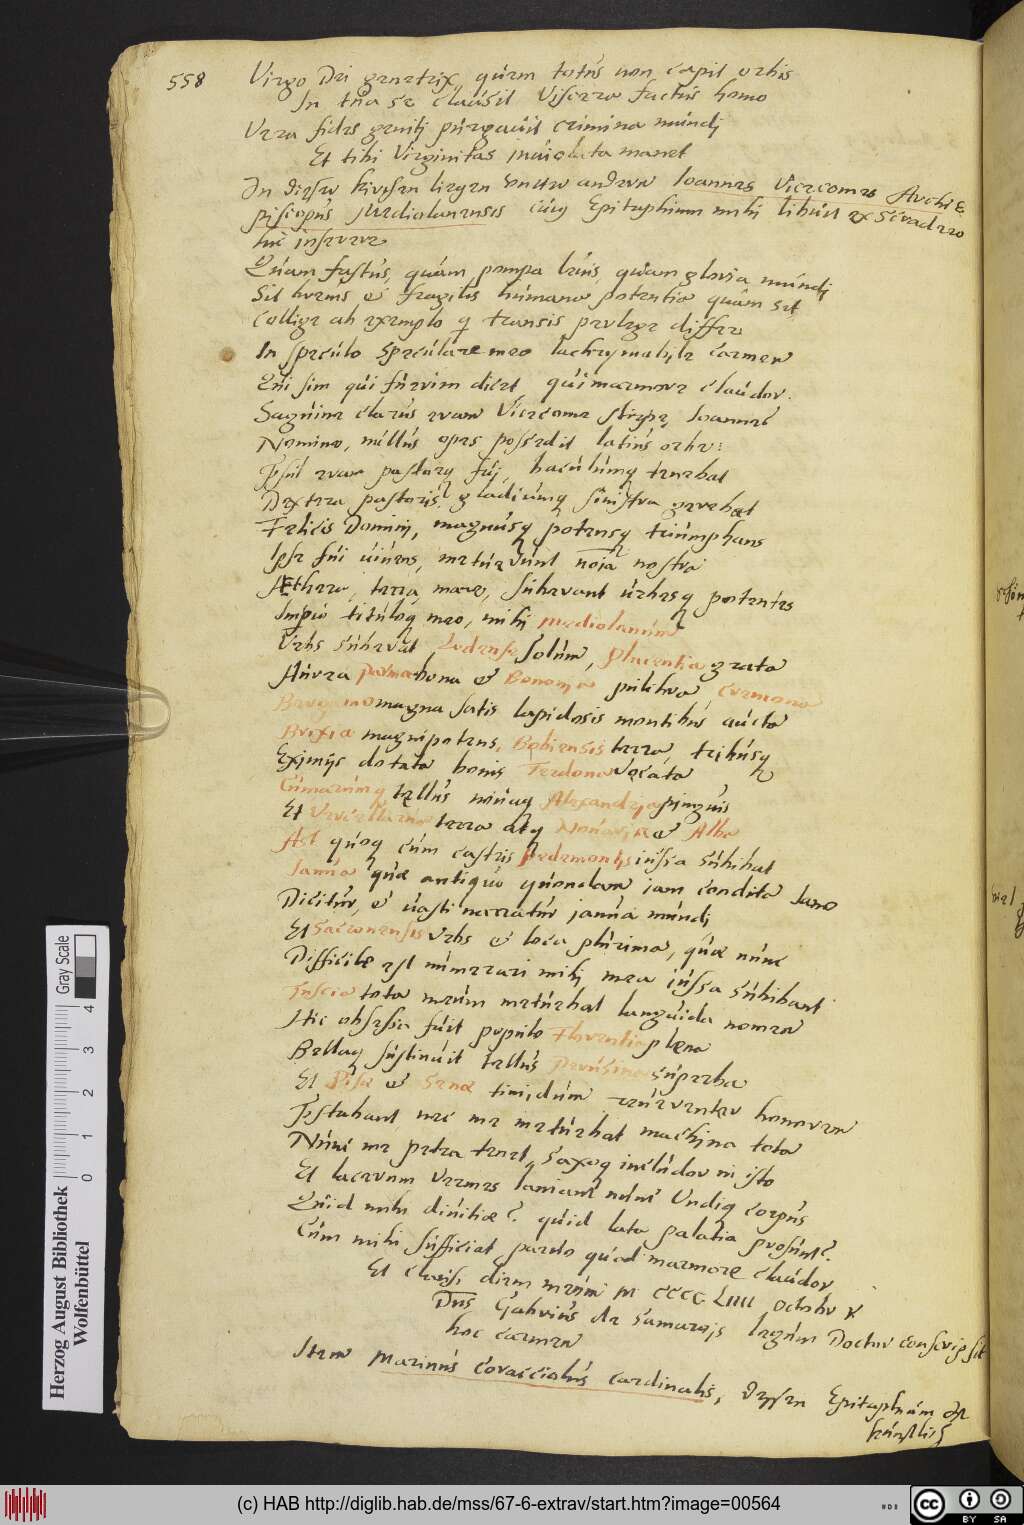 558
Virgo Dei genetrix, quem totus non capit orbis
In tua se clausit Viscera factus homo
Vera fides genitj purgauit crimina mundj
Et tibi Virginitas inuiolata manet
In dieser kirchen liegen vnter andern Ioannes Vicecomes Archie
piscopus Mediolanensis cuius Epitaphium mihi libuit ex
hic inserere
Quam fastus, quam pompa leuis, quam gloria mundj
Sit breuis et fragilis humana potentia quam sit
Collige ab exemplo q transis perlege differ
In speculo speculare meo lachrymabile carmen
Qui sim qui fuerim dicet, qui marmore claudor.
Sanguine clarus eram Vicecome stirpe, Ioannes
Nomine, nullus opes possedit latius orbe:
Pastor fui, baculumq tenebat
Dextera pastoris, gladiumq sinistra gerebat
Felicis Dominj, magnusq potensq triumphans
Ipse fui uiuens, metuerunt noia nostra
Æthera, terra, mare, suberant urbesq potentes
Imperio tituloq meo, mihi Mediolanum
Vrbs suberat, Ludense solum, Placentia grata
Aurea Parma bona et Bononia pulchra Cremona
Bergamo magna satis lapidosis montibus aucta
Brixia magnipotens, Bobiensis terra, tribusq
Eximijs dotata bonis Terdona vocata
Cumarumq tellus nouaq Alexandria pinguis
Et Vercellarum terra atq Nouaria et Alba
Ast quoq cum castris Pedemontis iussa subibat
Ianua quæ antiquo quondam iam condita Iano
Dicitur, et uasti narratur janua mundj
Et Sauonensis vrbs et loca plurima, quæ nunc
Difficile est numerari mihj mea iussa subibant
Tuscia tota meum metuebat languida nomen
Hic obsessa fuit populo Florentia plena
Bellaq sustinuit tellus Perusina superba
Et Pisæ et Senæ timidum reuerenter honorem
Præstabant nec me metuebat machina tota
Nunc me petra tenet saxoq includor in isto
Et lacerum vermes laniant nunc Vndiq corpus
Quid mihi diuitiæ? quid lata palatia prosunt?
Cum mihi sufficiat paruo quod marmore claudor
Et clausi diem meum M CCCC LIIII octobr X
Dns Gabrius de Zamoreis legum Doctor conscripsit
hoc carmen
Item Marinus Coracciolus cardinalis, dessen Epitaphium der
Herzog August Bibliothek
Wolfenbüttel
0 1 2 3 4
Gray Scale
(c) HAB http://diglib.hab.de/mss/67-6-extrav/start.htm?image=00564
HAB
cc
BY SA